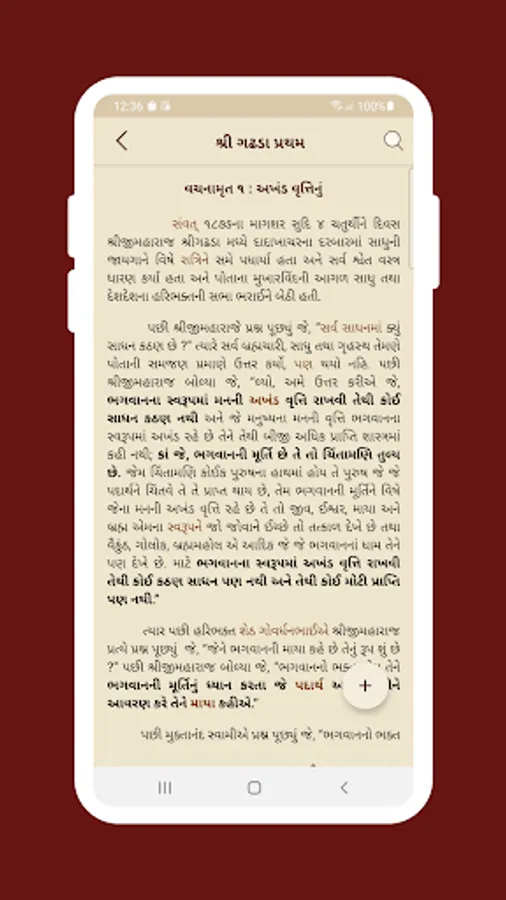 12:36
100%
શ્રી ગઢડા પ્રથમ
વચનામૃત ૧ : અખંડ વૃત્તિનું
સંવત્ ૧૮૭૬ના માગશર સુદિ ૪ ચતુર્થીને દિવસ
શ્રીજીમહારાજ શ્રીગઢડા મધ્યે દાદાખાચરના દરબારમાં સાધુની
જાયગાને વિષે રાત્રિને સમે પધાર્યા હતા અને સર્વ શ્વેત વસ્ત્ર
ધારણ કર્યા હતા અને પોતાના મુખારવિંદની આગળ સાધુ તથા
દેશદેશના હરિભક્તની સભા ભરાઈને બેઠી હતી.
પછી શ્રીજીમહારાજે પ્રશ્ન પૂછ્યું જે, “સર્વ સાધનમાં ક્યું
સાધન કઠણ છે ?” ત્યારે સર્વ બ્રહ્મચારી, સાધુ તથા ગૃહસ્થ તેમણે
પોતાની સમજણ પ્રમાણે ઉત્તર કર્યો, પણ થયો નહિ. પછી
શ્રીજીમહારાજ બોલ્યા જે, “લ્યો, અમે ઉત્તર કરીએ જે,
ભગવાનના સ્વરૂપમાં મનની અખંડ વૃત્તિ રાખવી તેથી કોઈ
સાધન કઠણ નથી અને જે મનુષ્યના મનની વૃત્તિ ભગવાનના
સ્વરૂપમાં અખંડ રહે છે તેને તેથી બીજી અધિક પ્રાપ્તિ શાસ્ત્રમાં
કહી નથી; કાં જે, ભગવાનની મૂર્તિ છે તે તો ચિંતામણિ તુલ્ય
છે. જેમ ચિંતામણિ કોઈક પુરુષના હાથમાં હોય તે પુરુષ જે જે
પદાર્થને ચિંતવે તે તે પ્રાપ્ત થાય છે, તેમ ભગવાનની મૂર્તિને વિષે
જેના મનની અખંડ વૃત્તિ રહે છે તે તો જીવ, ઈશ્વર, માયા અને
બ્રહ્મ એમના સ્વરૂપને જો જોવાને ઈચ્છે તો તત્કાળ દેખે છે તથા
વૈકુંઠ, ગોલોક, બ્રહ્મમહોલ એ આદિક જે જે ભગવાનનાં ધામ તેને
પણ દેખે છે. માટે ભગવાનના સ્વરૂપમાં અખંડ વૃત્તિ રાખવી
તેથી કોઈ કઠણ સાધન પણ નથી અને તેથી કોઈ મોટી પ્રાપ્તિ
પણ નથી.”
ત્યાર પછી હરિભક્ત શેઠ ગોવર્ધનભાઈએ શ્રીજીમહારાજ
પ્રત્યે પ્રશ્ન પૂછ્યું જે, “જેને ભગવાનની માયા કહે છે તેનું રૂપ શું છે
?” પછી શ્રીજીમહારાજ બોલ્યા જે, “ભગવાનનો ભક્ત તેને
ભગવાનની મૂર્તિનું ધ્યાન કરતા જે પદાર્થ
આવરણ કરે તેને માયા કહીએ.”
પછી મુક્તાનંદ સ્વામીએ પ્રશ્ન પૂછ્યું જે, “ભગવાનનો ભક્ત